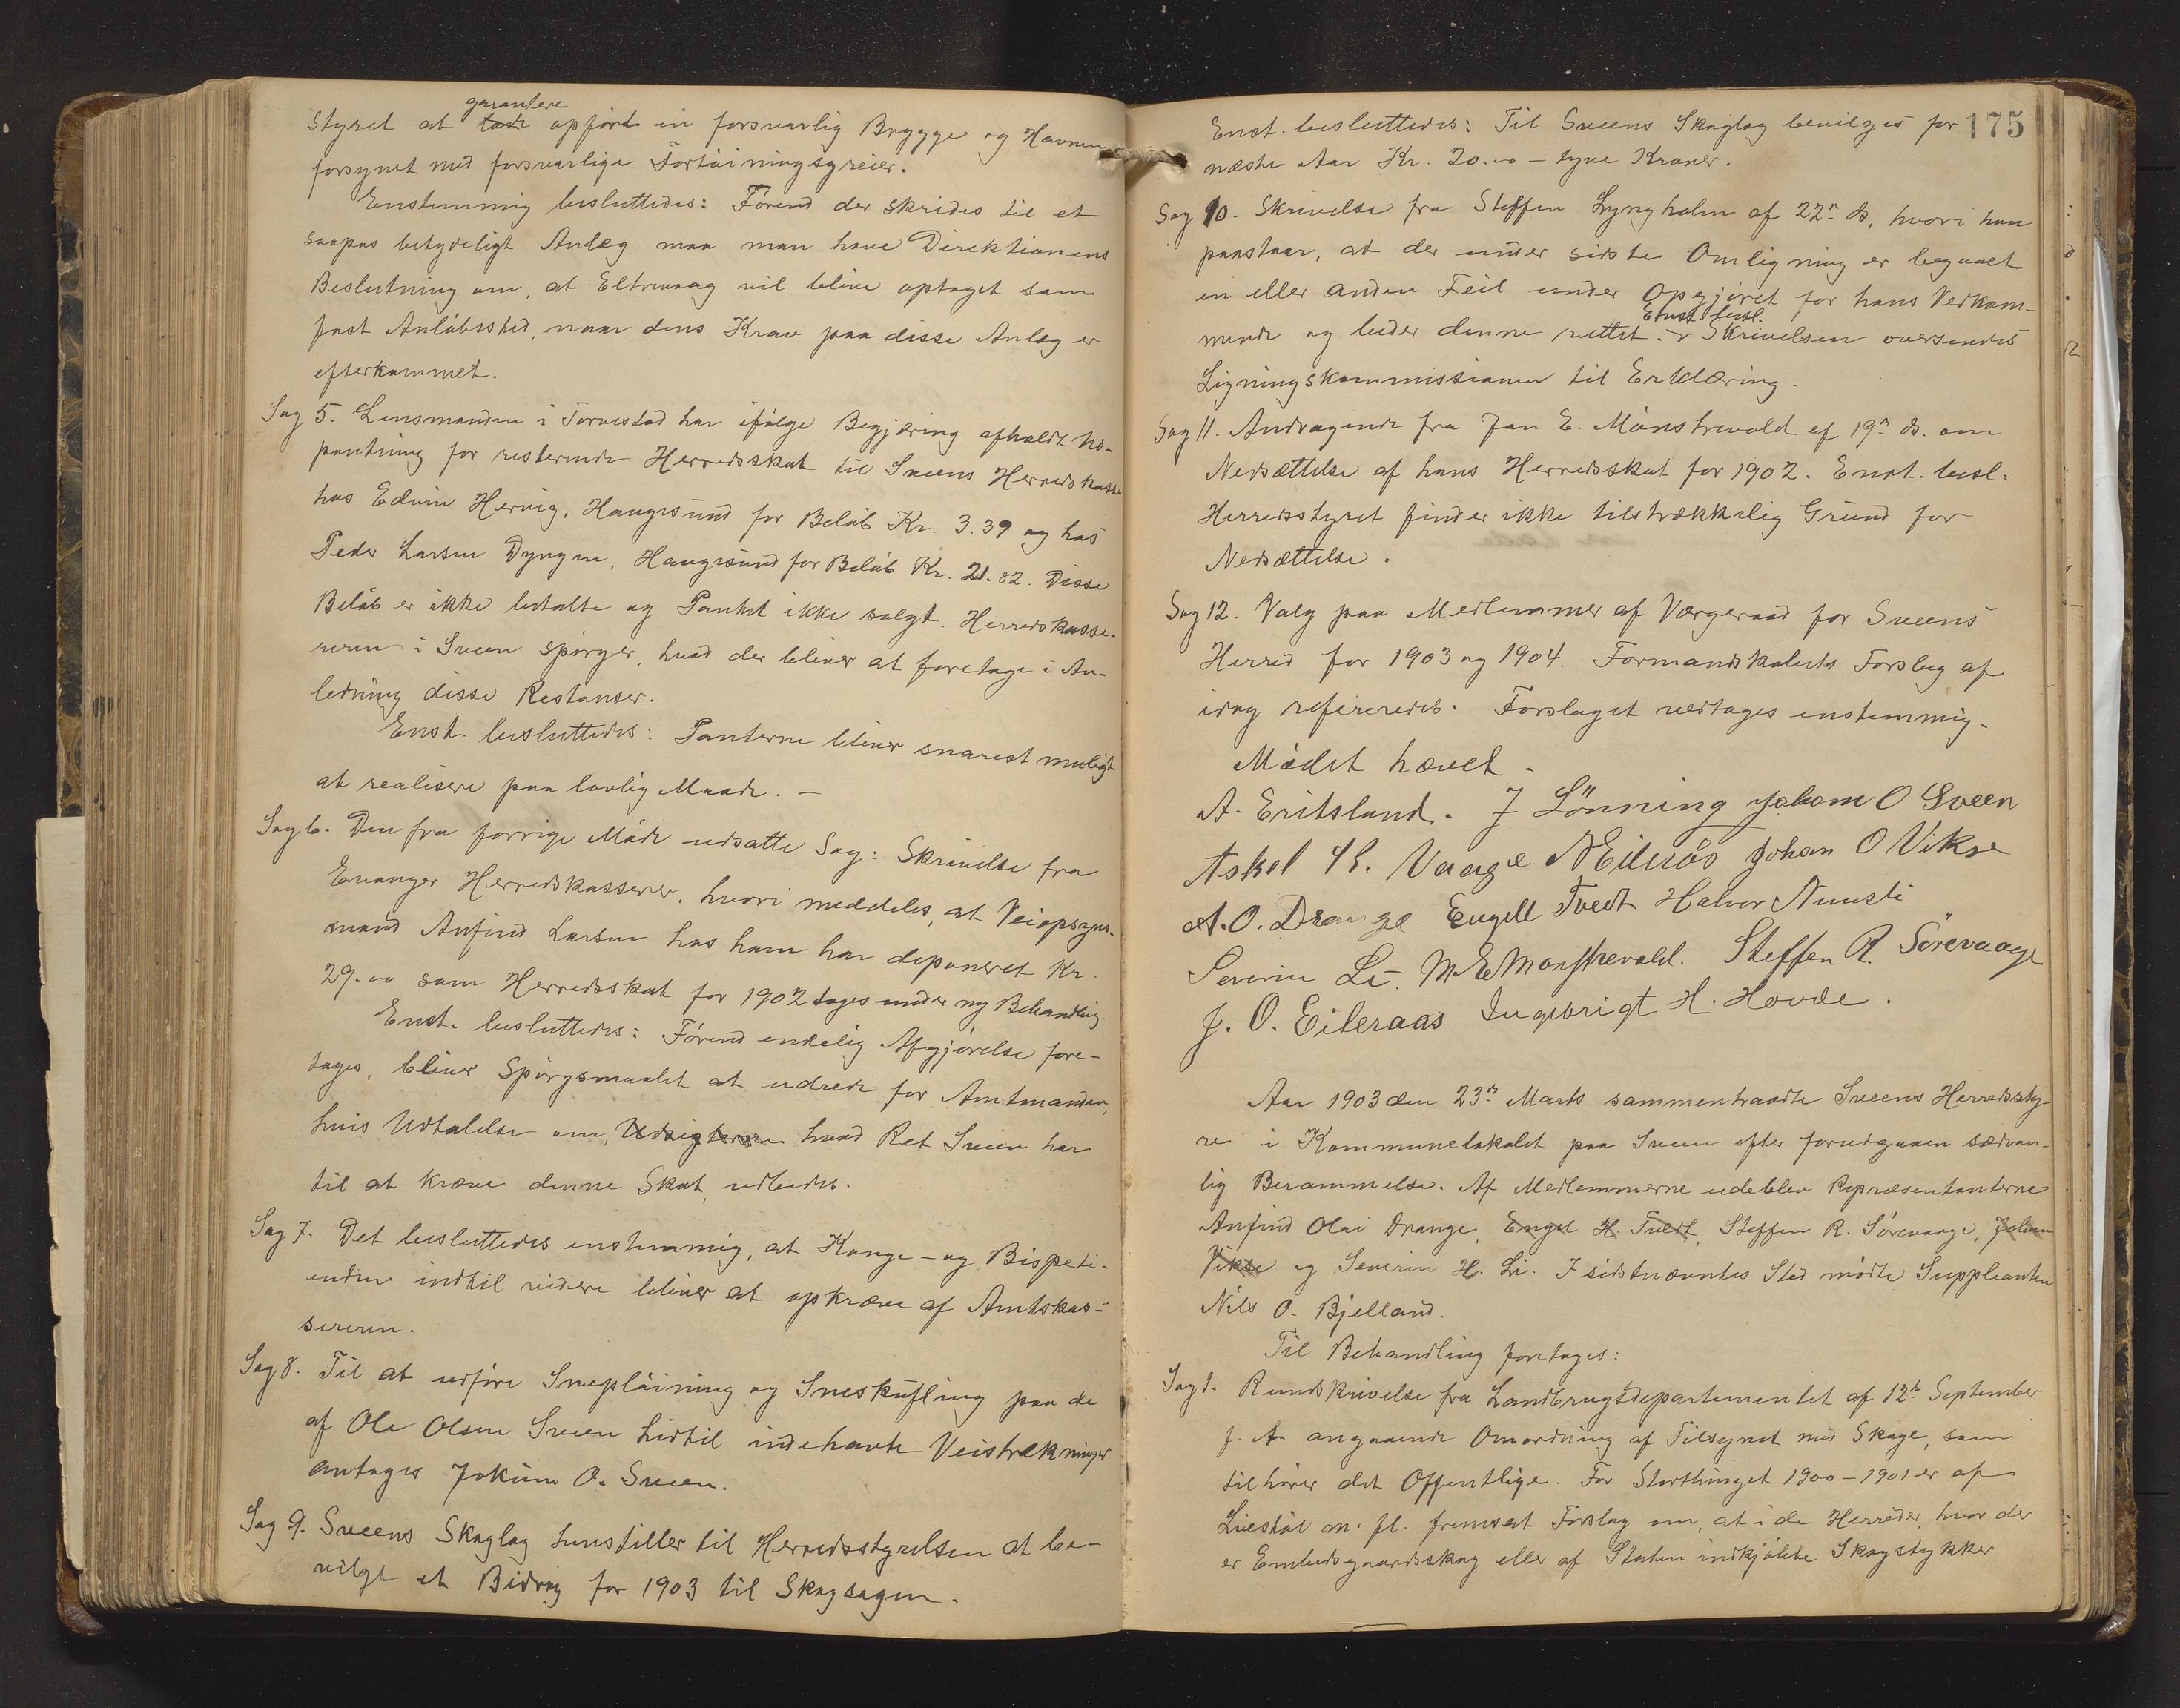 garantere
Styret at lade opført en forsvarlig Brygge og Havnen
forsynet med forsvarlige Fortøiningsgreier.
Enstemmig besluttedes: Førend der skrides til et
saapas betydeligt Anlæg maa man have Direktionens
Beslutning om, at Eltrevaag vil blive optaget som
fast Anløbssted, naar dens Krav paa disse Anlæg er
efterkommet.
Sag 5. Lensmanden i Torvestad har ifølge Begjæring afholdt Ud-
pantning for resterende Herredsskat til Sveens Herredskasse
hos Edvin Hervig, Haugesund for Beløb Kr. 3.39 og hos
Peder Larsen Dyngen, Haugesund for Beløb Kr. 21.82. Disse
Beløb er ikke betalte og Pantet ikke solgt. Herredskasse-
reren i Sveen spørger, hvad der bliver at foretage i An-
ledning disse Restanser.
Enst. besluttedes: Panterne bliver snarest muligt
at realisere paa lovlig Maade. —
Sag 6. Den fra forrige Møde udsatte Sag: Skrivelse fra
Evanger Herredskasserer, hvori meddeles, at Veiopsyns-
mand Anfind Larsen hos ham har deponeret Kr.
29.00 som Herredsskat for 1902 tages under ny Behandling.
Enst. besluttedes: Førend endelig Afgjørelse fore-
tages, bliver Spørgsmaalet at udrede for Amtmanden,
hvis Udtalelse om, Udsigterne hvad Ret Sveen har
til at kræve denne Skat, udbedes.
Sag 7. Det besluttedes enstemmig, at Konge- og Bispeti-
enden indtil videre bliver at opkræve af Amtskas-
sereren.
Sag 8. Til at udføre Snepløining og Sneskufling paa de
af Ole Olsen Sveen hidtil indehavte Veistrækninger
antages Jokum O. Sveen.
Sag 9. Sveens Skoglag henstiller til Herredsstyrelsen at be-
vilge et Bidrag for 1903 til Skogsagen.
175
Enst. besluttedes: Til Sveens Skoglag bevilges for
næste Aar Kr. 20.00 - tyve Kroner.
Sag 10. Skrivelse fra Steffen Lyngholm af 22n ds, hvori han
paastaar, at der under sidste Omligning er begaaet
en eller anden Feil under Opgjøret for hans Vedkom-
Enst. besl.
mende og beder denne rettet. Skrivelsen oversendes
Ligningskommissionen til Erklæring.
Sag 11. Andragende fra Jan E. Mønstrevold af 19n ds. om
Nedsættelse af hans Herredsskat for 1902. Enst. besl.
Herredsstyret finder ikke tilstrækkelig Grund for
Nedsættelse.
Sag 12. Valg paa Medlemmer af Værgeraad for Sveens
Herred for 1903 og 1904. Formandskabets Forslag af
idag refereredes. Forslaget vedtages enstemmig.
Mødet hævet.
A. Eritsland. J Lönning Johan O Sveen
Askel Vaage N Eileraas Johan O Vikse
A. O. Drange Engell Tvedt Halvor
Severin Li. M E Monstrevold. Steffen R. Sörevaage
J. O. Eileraas Ingebrigt H. Hovde.
Aar 1903 den 23n Marts sammentraadte Sveens Herredssty-
re i Kommunelokalet paa Sveen efter forudgaaen sædvan-
lig Berammelse. Af Medlemmerne udeblev Repræsentanterne
Anfind Olai Drange, Engel H. Tvedt, Steffen R. Sørevaage, Johan
Vikse og Severin H. Li. I sidstnævntes Sted mødte Suppleanten
Nils O. Bjelland.
Til Behandling foretages:
Sag 1. Rundskrivelse fra Landbrugsdepartementet af 12te September
f. A. angaaende Omordning af Tilsynet med Skoge, som
tilhører det Offentlige. For Storthinget 1900-1901 er af
Liestøl m. fl. fremsat Forslag om, at i de Herreder, hvor der
er Embedsgaardsskog eller af Staten indkjøbte Skogstykker